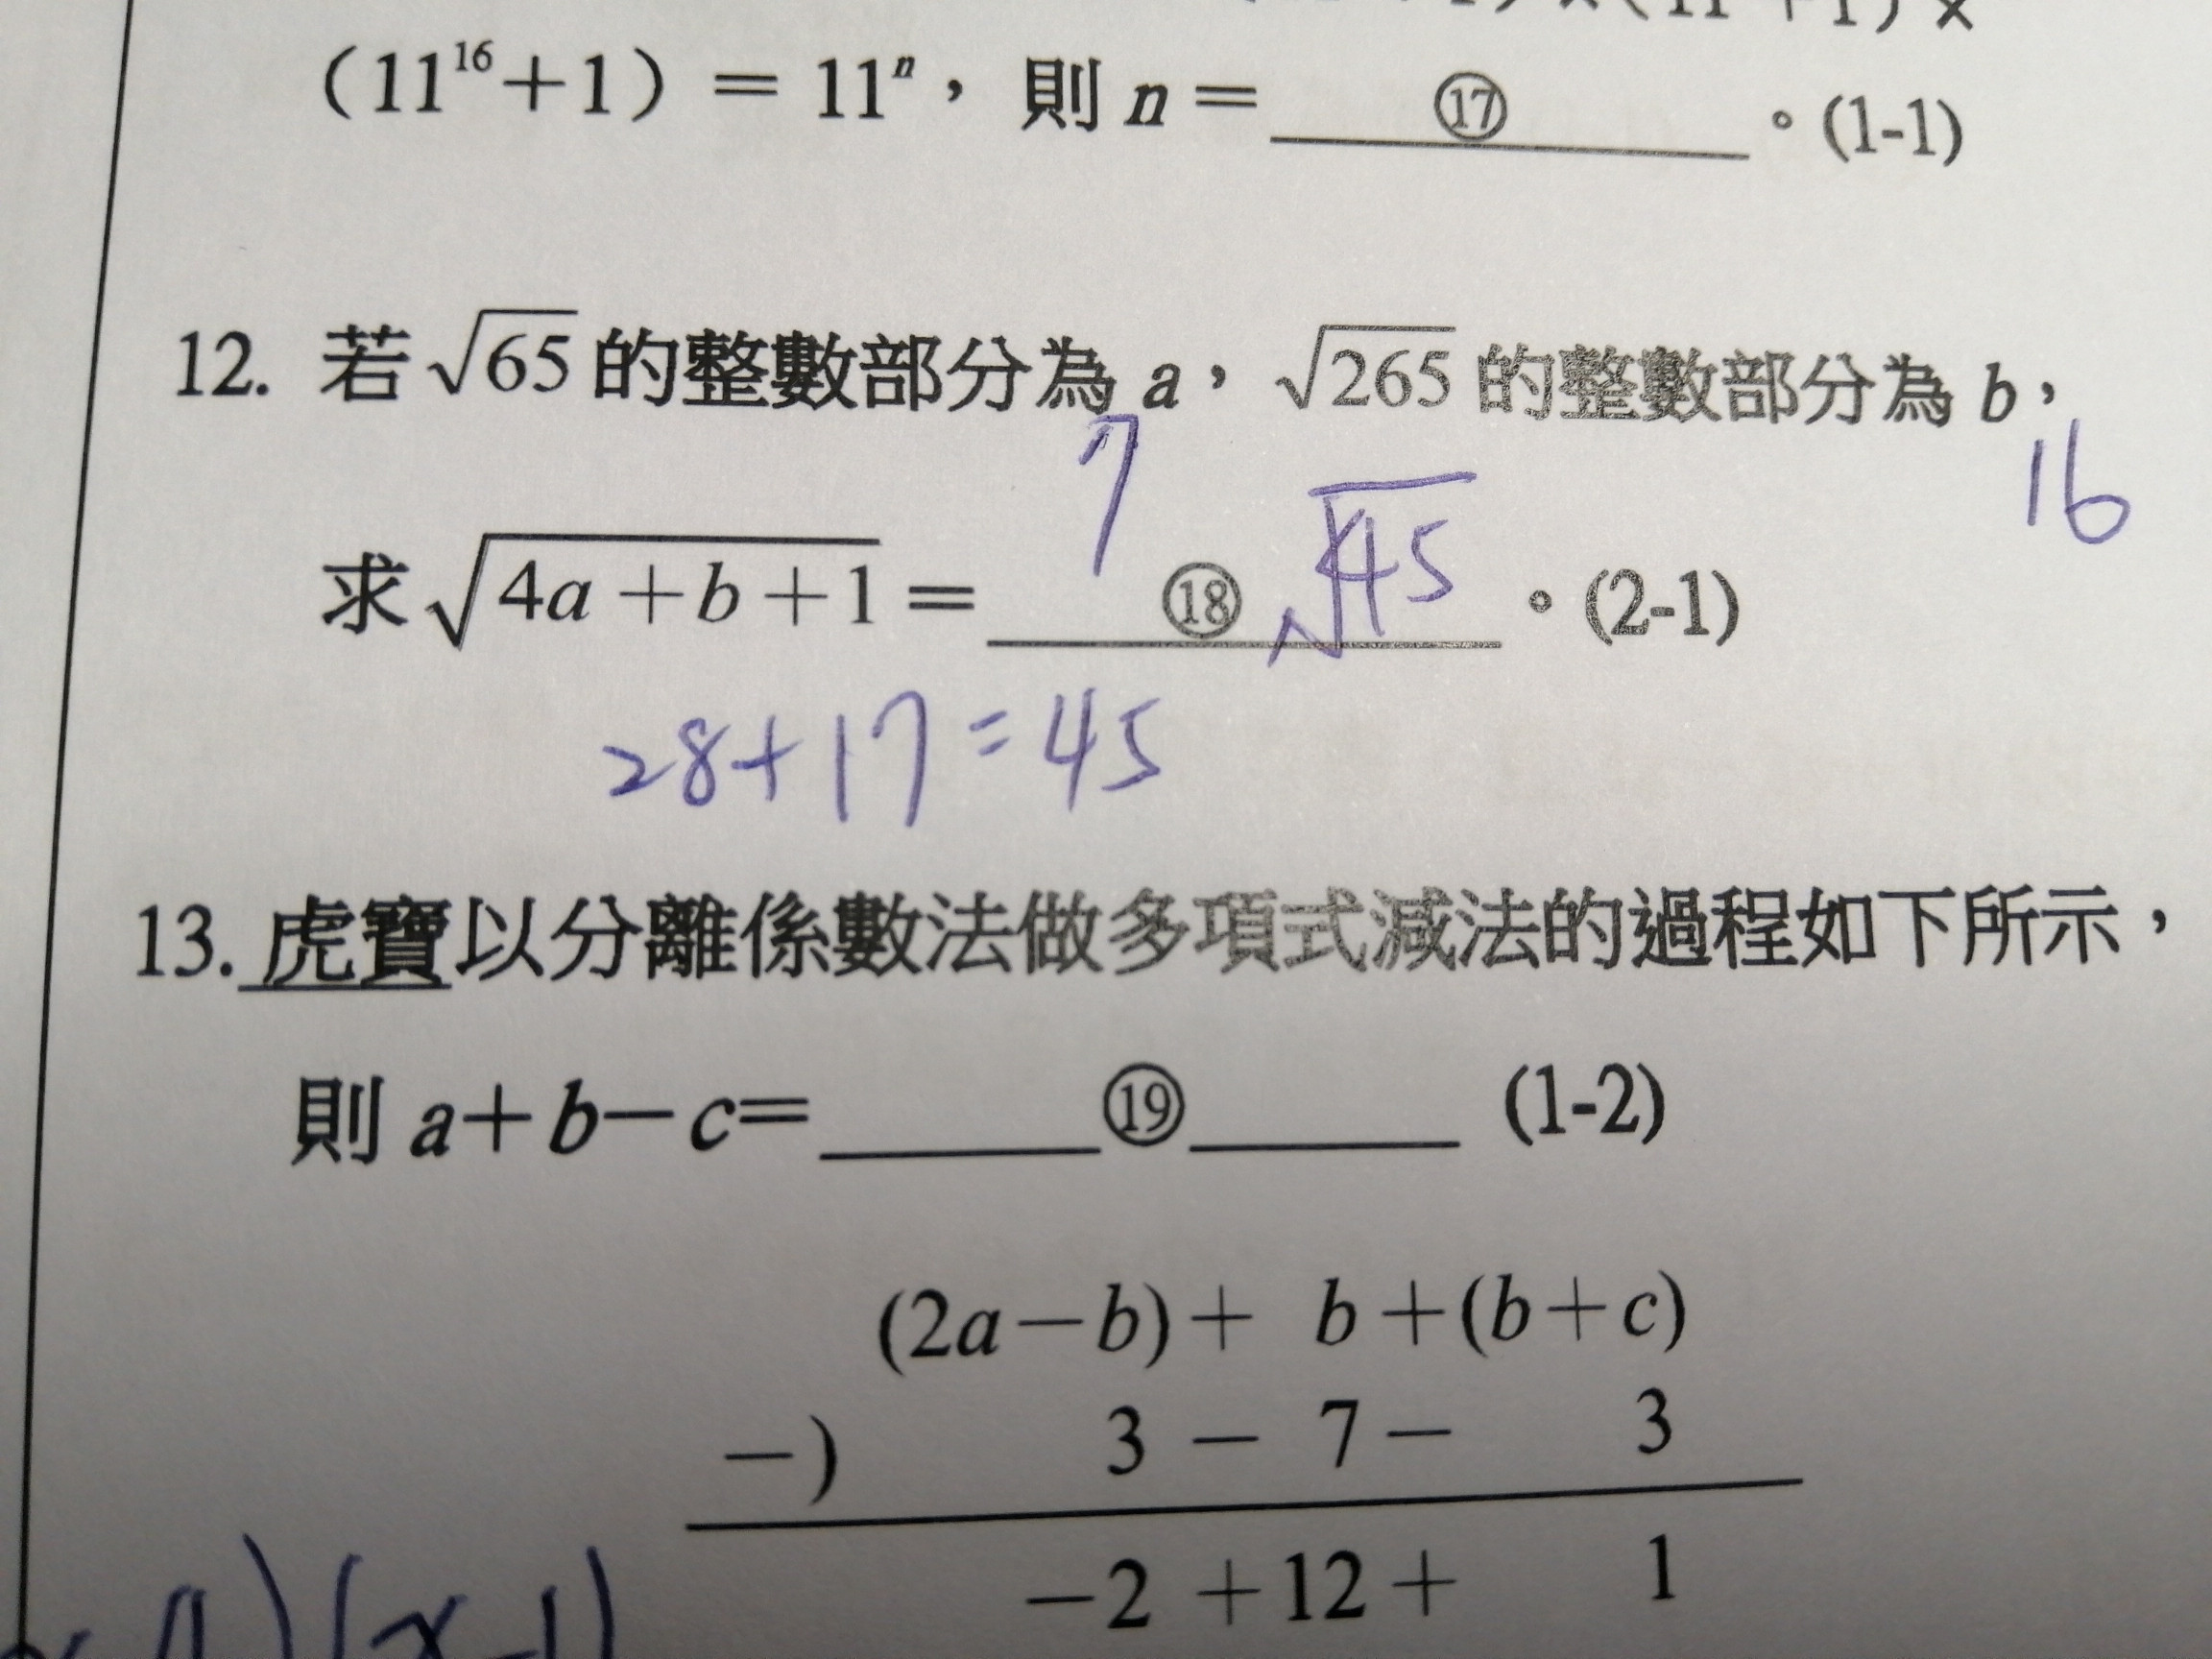 (11¹⁶+1) = 11ⁿ，則 n = ⑰ 。(1-1)
12. 若 √65 的整數部分為 a，√265 的整數部分為 b，
7
16
求 √(4a+b+1) = ⑱ √45 。(2-1)
28+17=45
13. 虎寶以分離係數法做多項式減法的過程如下所示，
則 a+b−c= ⑲ (1-2)
(2a−b)+ b+(b+c)
−) 3 − 7 − 3
−2 +12 + 1
)(x-1)